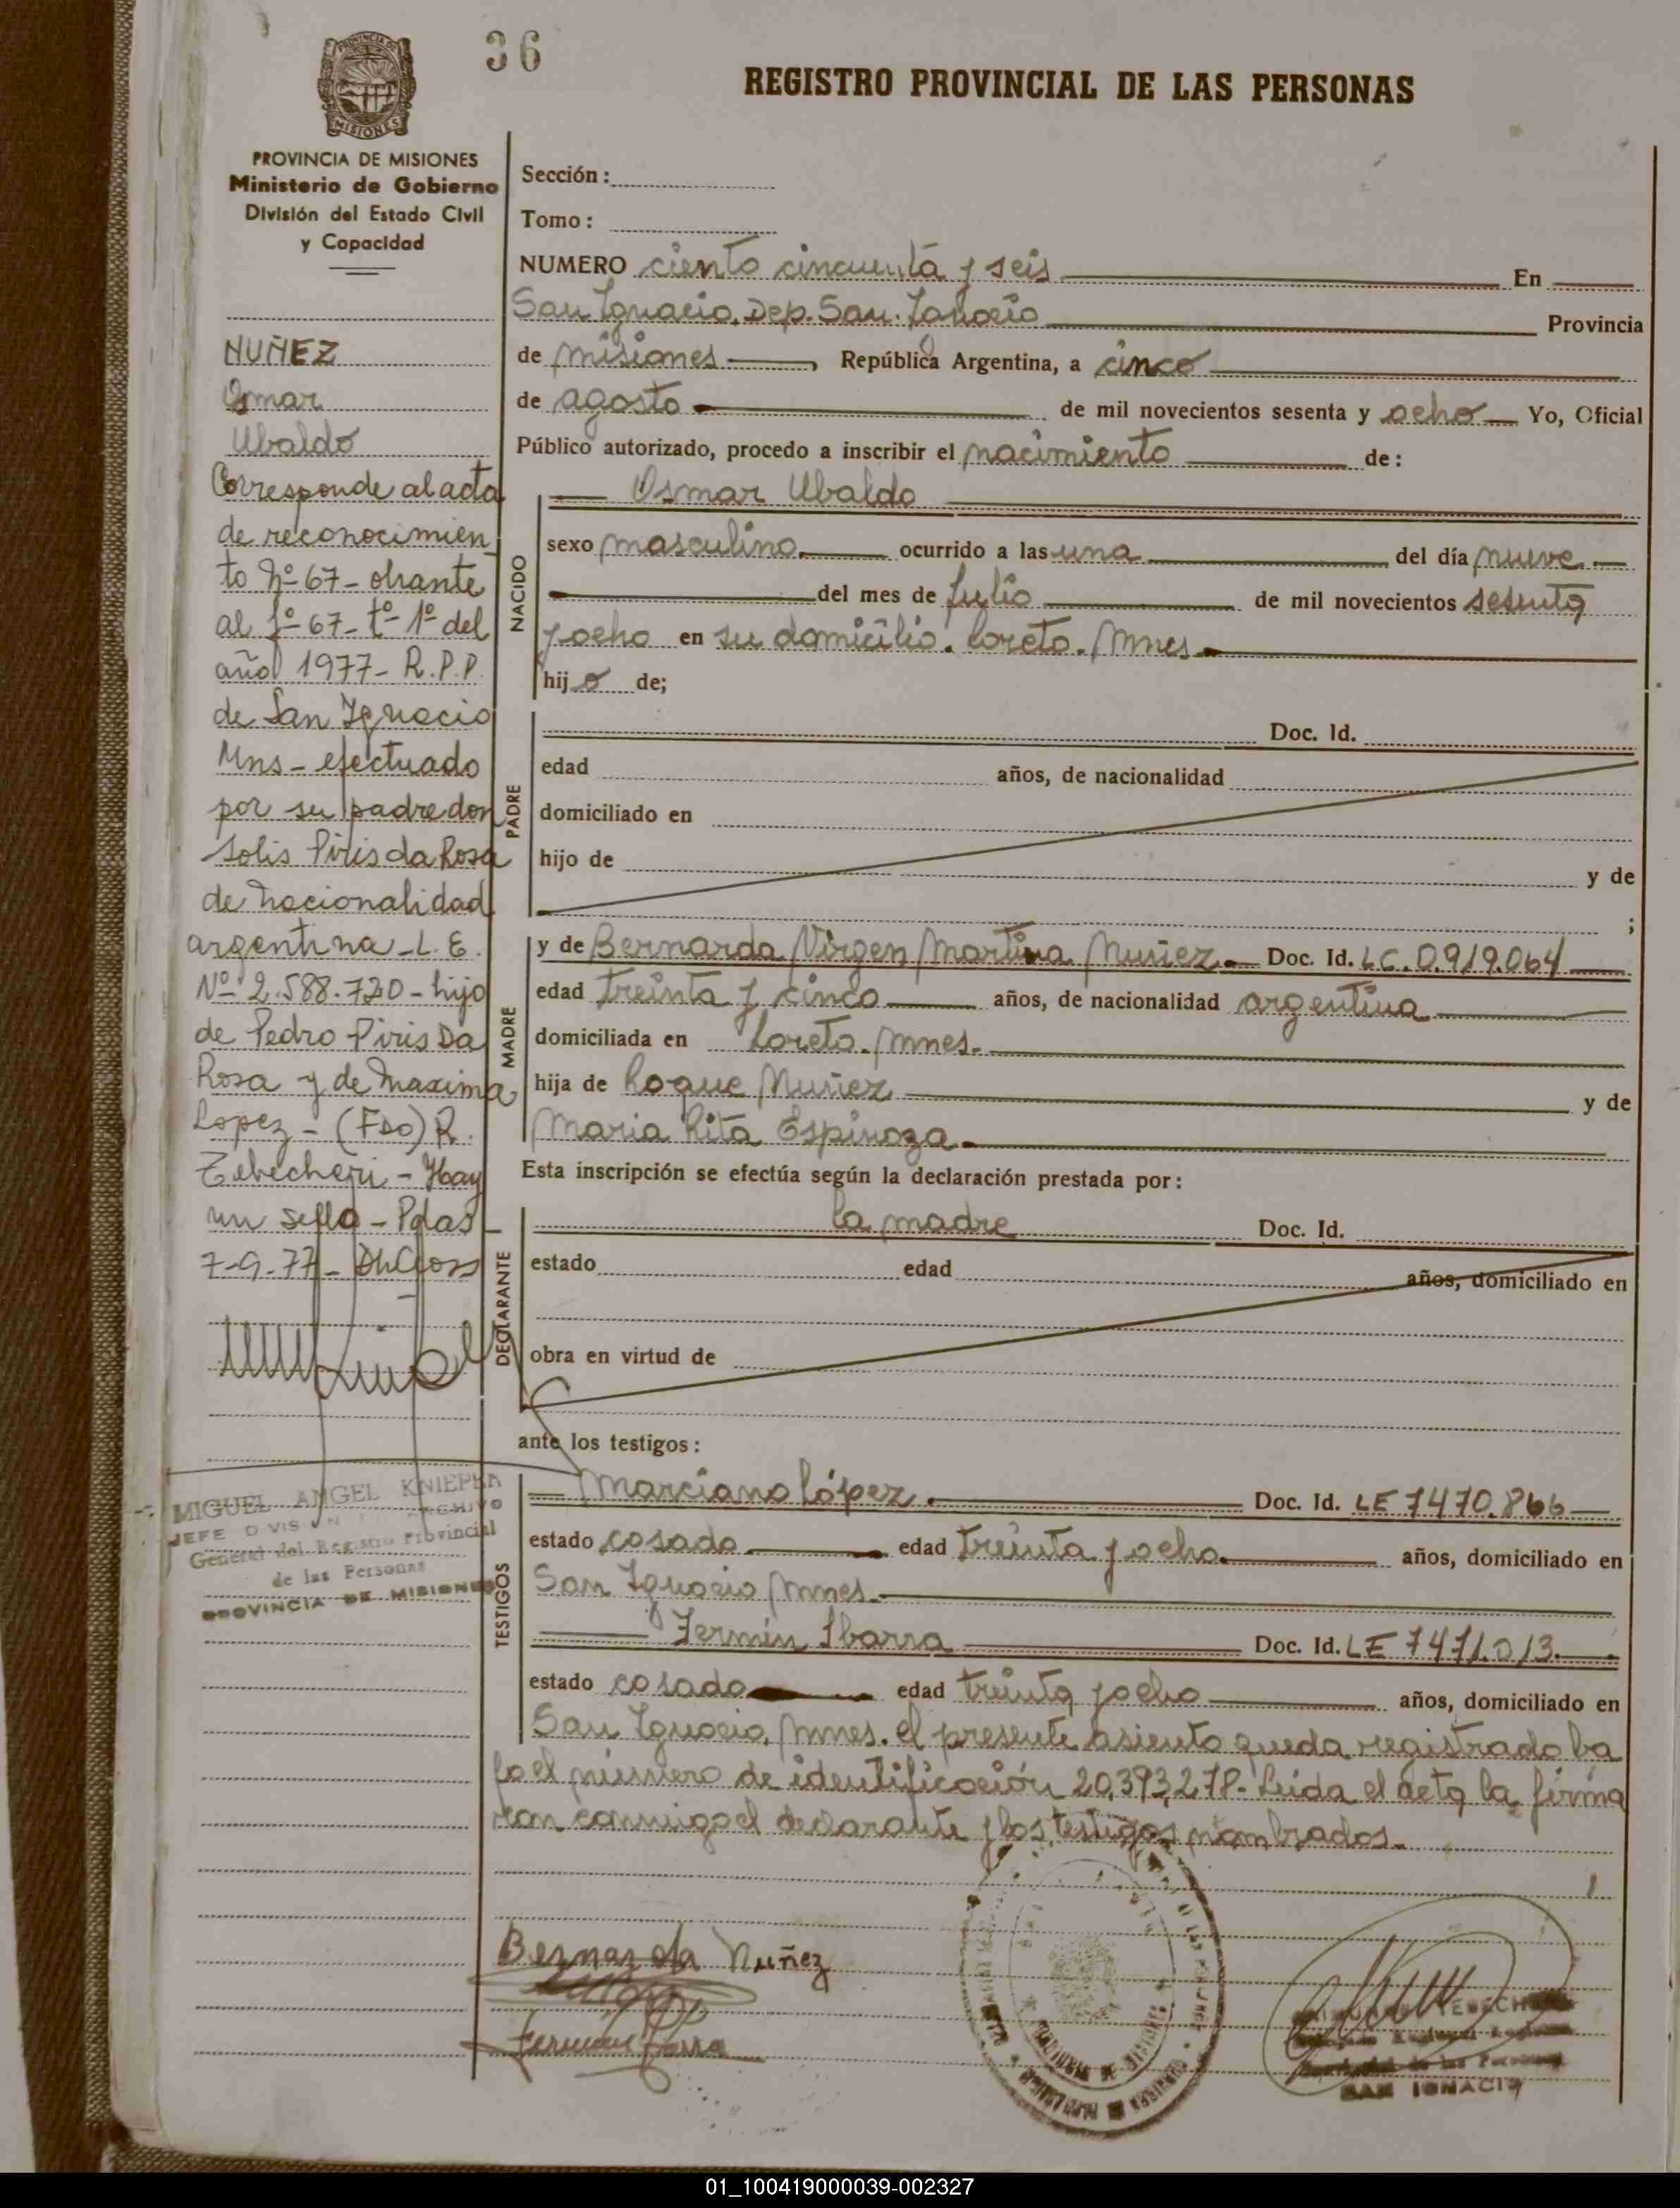 36
REGISTRO PROVINCIAL DE LAS PERSONAS
PROVINCIA DE MISIONES
PROVINCIA DE MISIONES
Ministerio de Gobierno
División del Estado Civil
y Capacidad
NUÑEZ
Osmar
Ubaldo
Corresponde al acta
de reconocimien
to Nº 67 - obrante
al fº 67 - tº 1º del
año 1977 - R.P.P.
de San Ignacio
Mns - efectuado
por su padre don
Solis Piris da Rosa
de nacionalidad
argentina - L.E.
Nº 2.588.720 - hijo
de Pedro Piris Da
Rosa y de Maxima
Lopez - (FDO) R.
Zebecheri - Hay
un sello - Pdas
7-9-77 -
MIGUEL ANGEL KNIEPER
JEFE DIVISION ARCHIVO
General del Registro Provincial
de las Personas
PROVINCIA DE MISIONES
Sección:
Tomo:
NUMERO ciento cincuenta y seis En
San Ignacio. Dep. San. Ignacio Provincia
de Misiones, República Argentina, a cinco
de agosto de mil novecientos sesenta y ocho Yo, Oficial
Público autorizado, procedo a inscribir el nacimiento de:
NACIDO
Osmar Ubaldo
sexo masculino. ocurrido a las una del día nueve.
del mes de Julio de mil novecientos sesenta
y ocho en su domicilio. Loreto. Mnes.
hijo de;
PADRE
Doc. Id.
edad años, de nacionalidad
domiciliado en
hijo de y de
;
MADRE
y de Bernarda Virgen Martina Nuñez. Doc. Id. LC. 0.919.064
edad treinta y cinco años, de nacionalidad argentina
domiciliada en Loreto. Mnes.
hija de Roque Nuñez y de
Maria Rita Espinoza.
Esta inscripción se efectúa según la declaración prestada por:
DECLARANTE
la madre Doc. Id.
estado edad años, domiciliado en
obra en virtud de
ante los testigos:
TESTIGOS
Marciano López. Doc. Id. LE 7470.866
estado casado edad treinta y ocho. años, domiciliado en
San Ignacio Mnes.
Fermín Ibarra Doc. Id. LE 7471.013.
estado casado edad treinta y ocho años, domiciliado en
San Ignacio, Mnes. el presente asiento queda registrado ba
jo el número de identificación 20,393,278. Leida el acta la firma
ron conmigo el declarante y los testigos nombrados.
Bernarda Nuñez
Fermín Ibarra
SAN IGNACIO
01_100419000039-002327